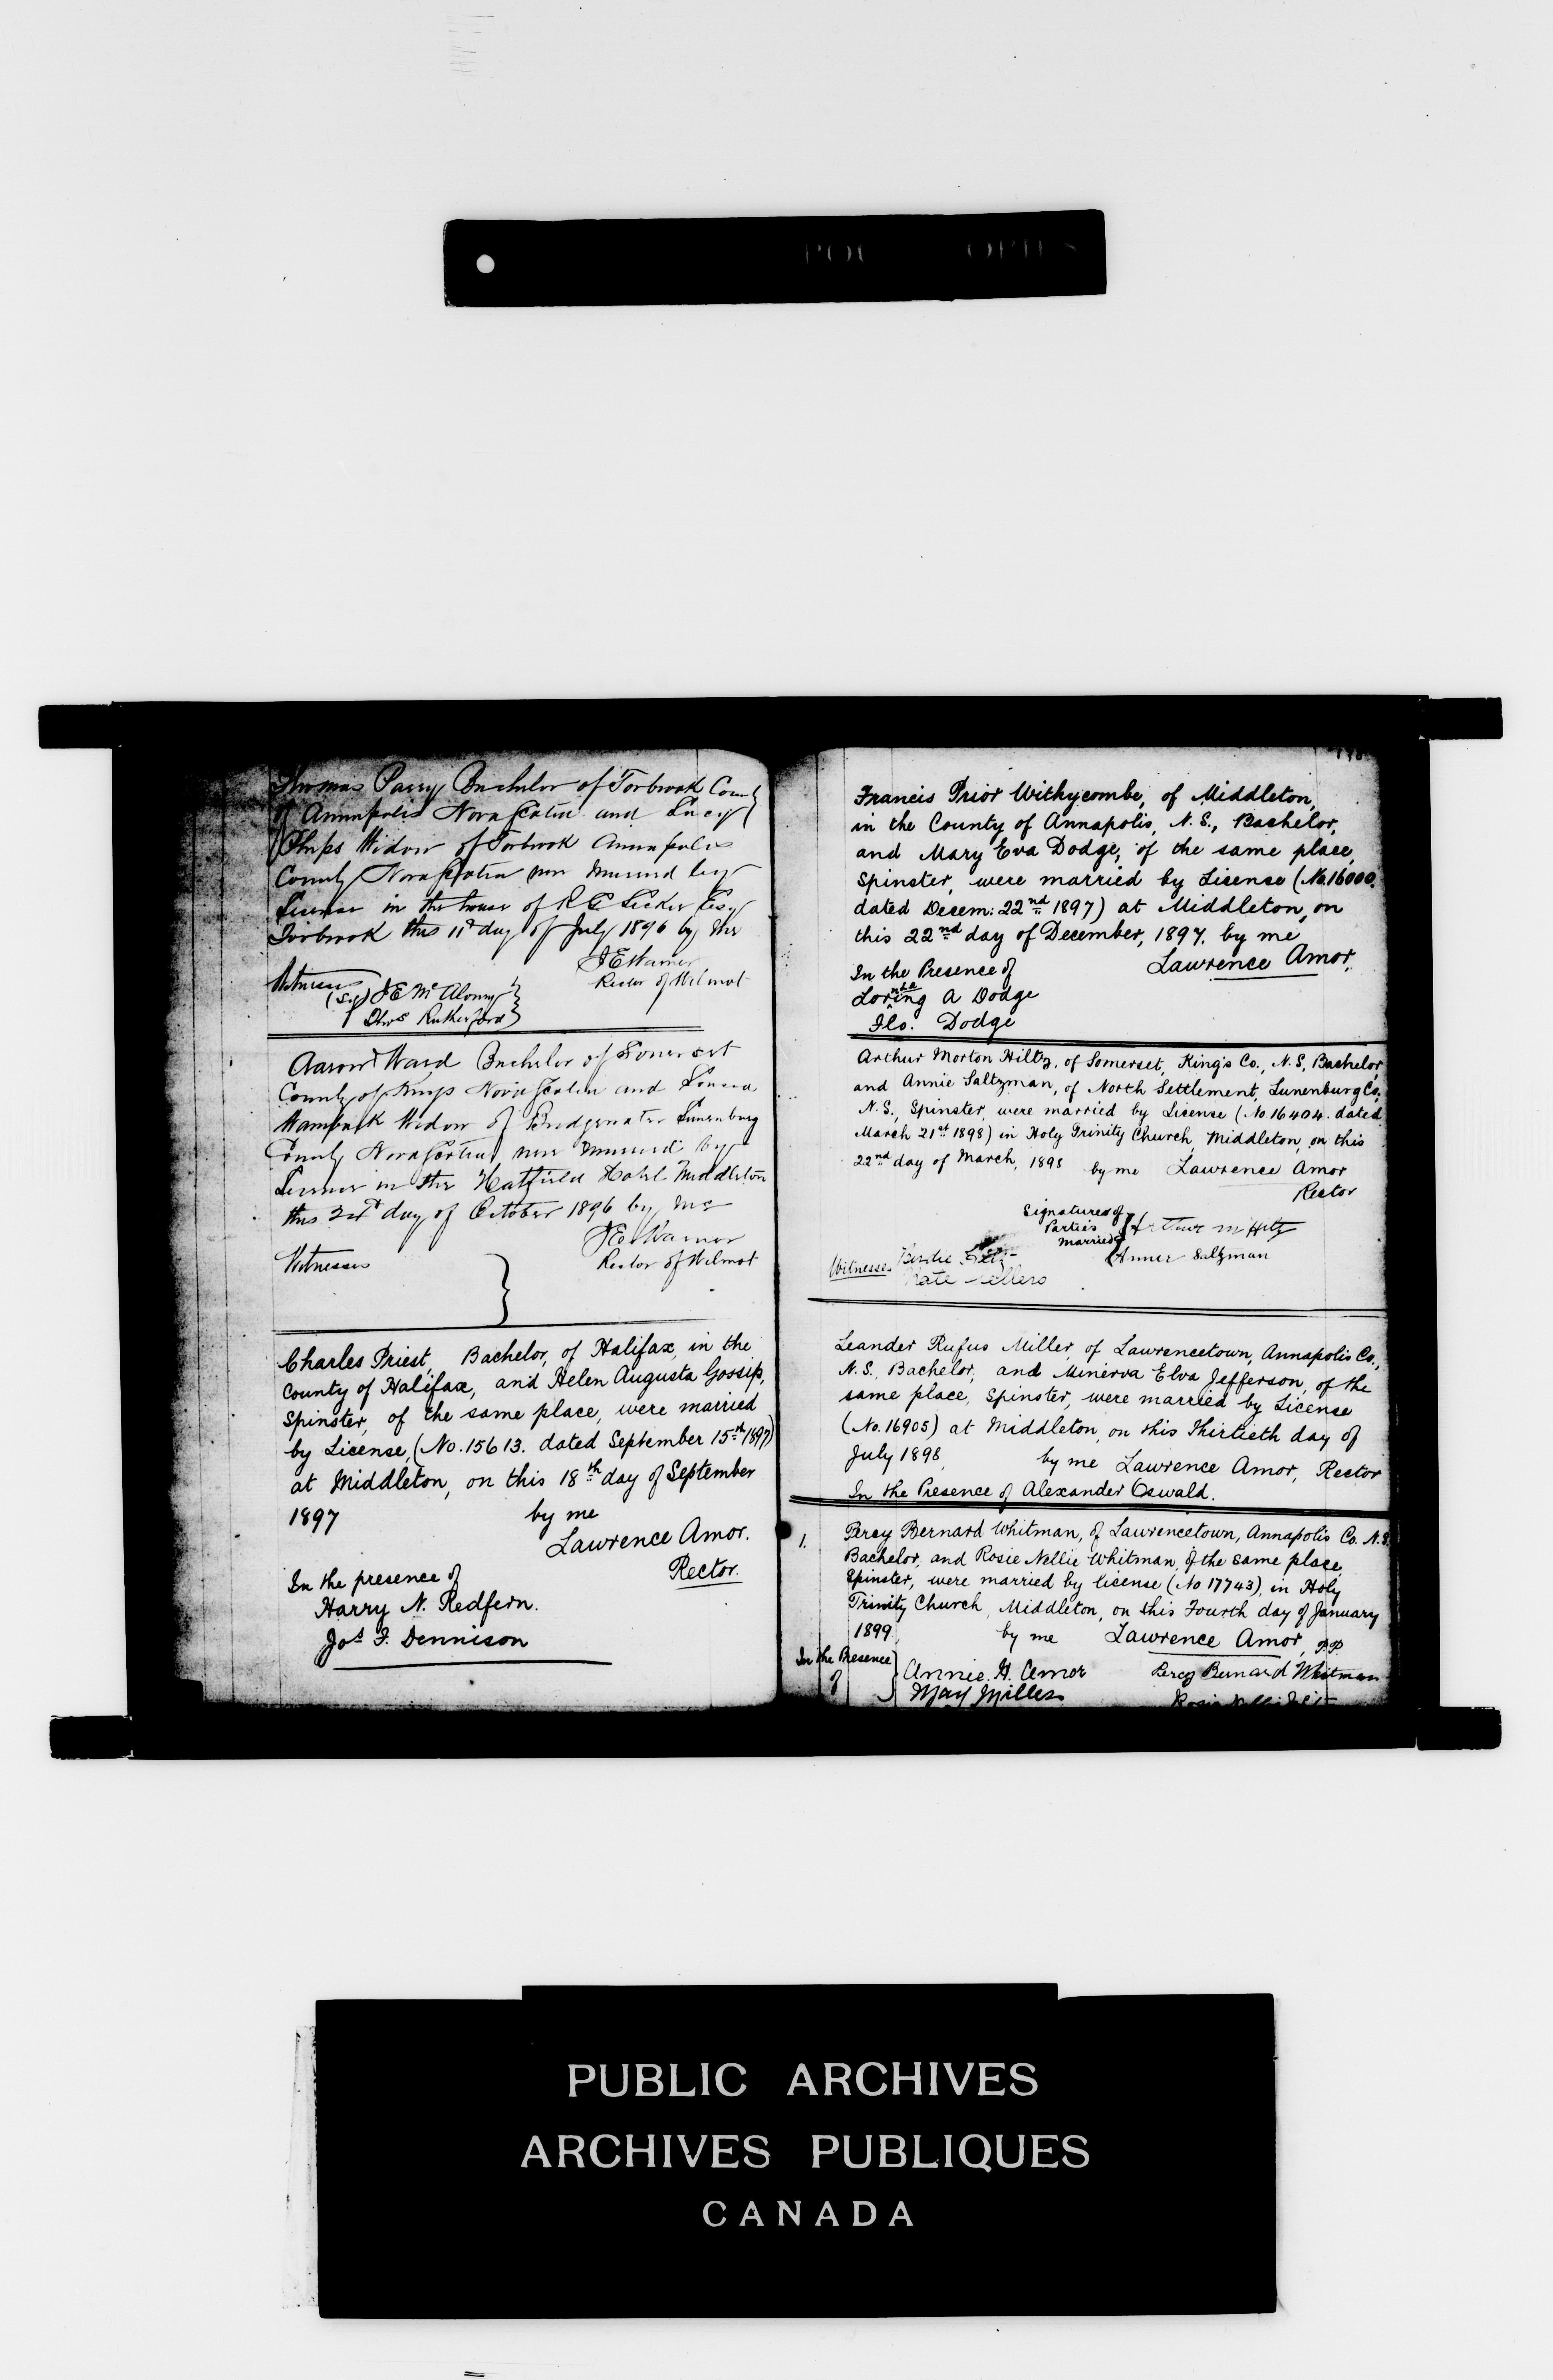 Thomas Parry Bachelor of Torbrook County
of Annapolis Nova Scotia and Lucy
Phips Widow of Torbrook Annapolis
County Nova Scotia were Married by
License in the house of R E Esqr
Torbrook this 11th day of July 1896 by Me
J E Warner
Rector of Wilmot
Witnesses
J E McAloney
Thos Rutherford
Aaron Ward Bachelor of Somerset
County of Kings Nova Scotia and
Wamback Widow of Bridgewater Lunenburg
County Nova Scotia were Married by
License in the Hatfield Hotel Middleton
this day of October 1896 by Me
J E Warner
Rector of Wilmot
Witnesses
Charles Priest, Bachelor, of Halifax, in the
County of Halifax, and Helen Augusta Gossip,
Spinster, of the same place, were married
by License, (No. 15613. dated September 15th 1897)
at Middleton, on this 18th day of September
1897 by me
Lawrence Amor.
Rector.
In the presence of
Harry N. Redfern.
Jos F. Dennison
Francis Prior Withycombe, of Middleton,
in the County of Annapolis, N.S., Bachelor,
and Mary Eva Dodge, of the same place,
Spinster, were married by License (No. 16000.
dated Decem: 22nd 1897) at Middleton, on
this 22nd day of December, 1897. by me
Lawrence Amor.
In the Presence of
A Dodge
Flo. Dodge
Arthur Morton Hiltz, of Somerset, King's Co., N.S, Bachelor,
and Annie Saltzman, of North Settlement, Lunenburg Co.,
N.S., Spinster, were married by License (No 16404. dated
March 21st 1898) in Holy Trinity Church, Middleton, on this
22nd day of March, 1898 by me Lawrence Amor
Rector
Signatures of
Parties
Married
Arthur M Hiltz
Annie Saltzman
Witnesses
Kate Sellers
Leander Rufus Miller, of Lawrencetown, Annapolis Co.,
N.S., Bachelor, and Minerva Elva Jefferson, of the
same place, Spinster, were married by License
(No. 16905) at Middleton, on this Thirtieth day of
July 1898, by me Lawrence Amor, Rector
In the Presence of Alexander Oswald.
1. Percy Bernard Whitman, of Lawrencetown, Annapolis Co. N.S.
Bachelor, and Rosie Nellie Whitman, of the same place,
Spinster, were married by license (No 17743), in Holy
Trinity Church, Middleton, on this Fourth day of January
1899. by me Lawrence Amor, P.P.
In the Presence
of
Annie. H. Amor
May Miller
Percy Bernard Whitman
Rosie Nellie
PUBLIC ARCHIVES
ARCHIVES PUBLIQUES
CANADA